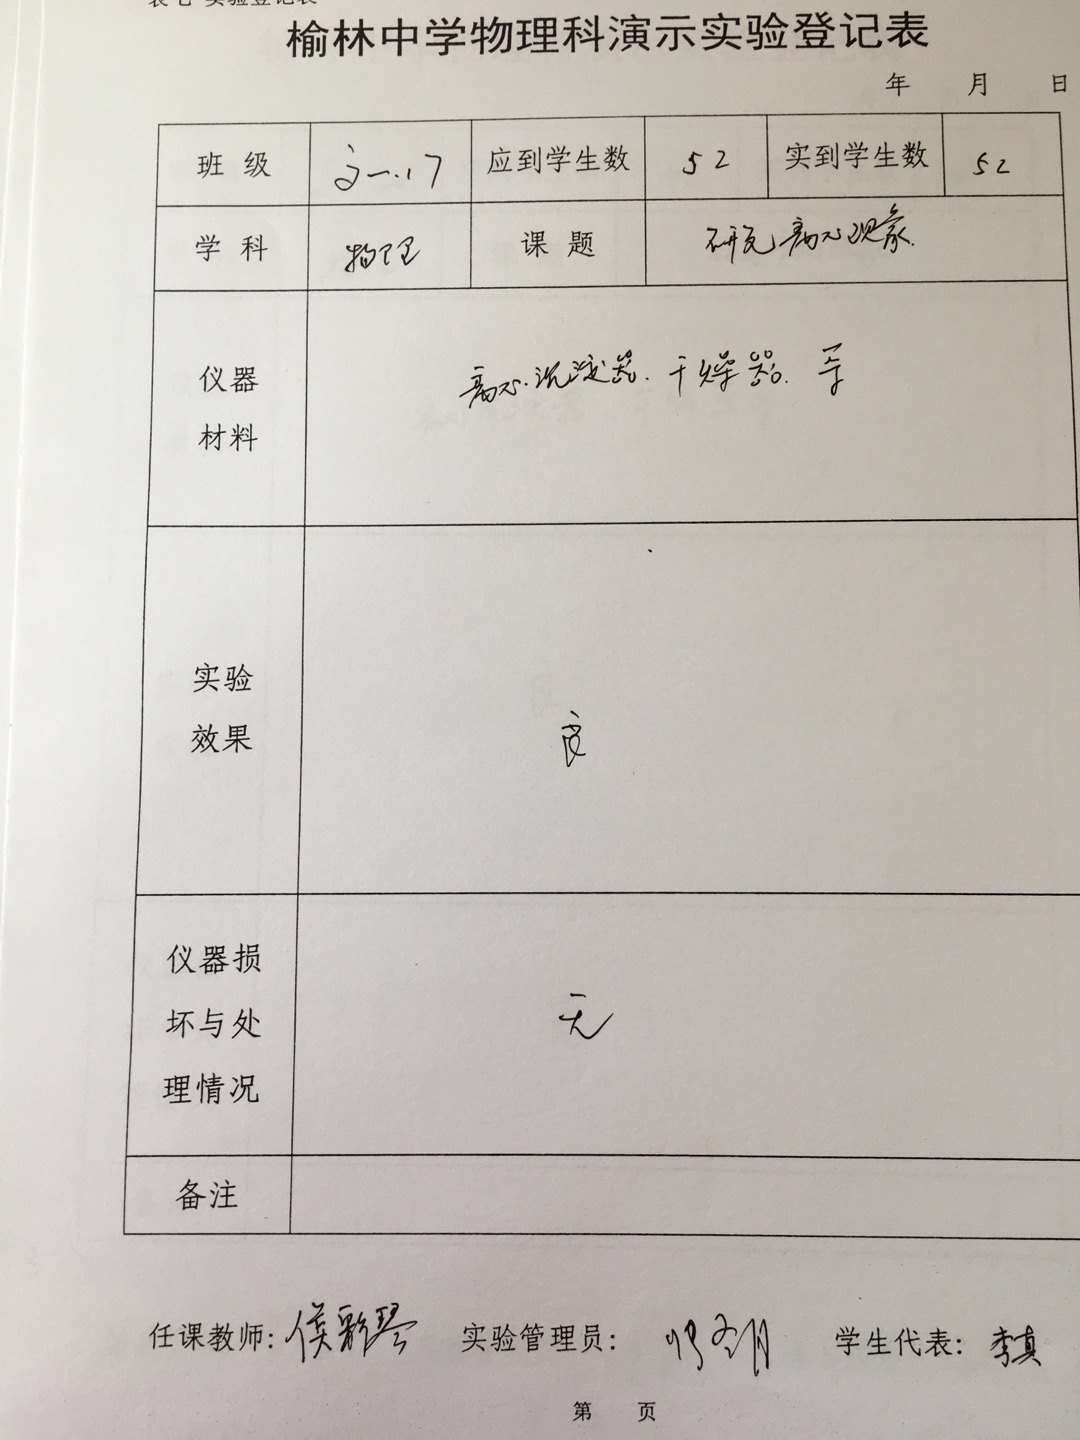 表七 实验登记表
榆林中学物理科演示实验登记表
年 月 日
班 级 文一.17 应到学生数 52 实到学生数 52
学 科 物理 课 题 研究离心现象.
仪器
材料
离心沉淀器.干燥器.等
实验
效果
良
仪器损
坏与处
理情况
无
备注
任课教师:侯彩琴 实验管理员: 学生代表:李真
第 页